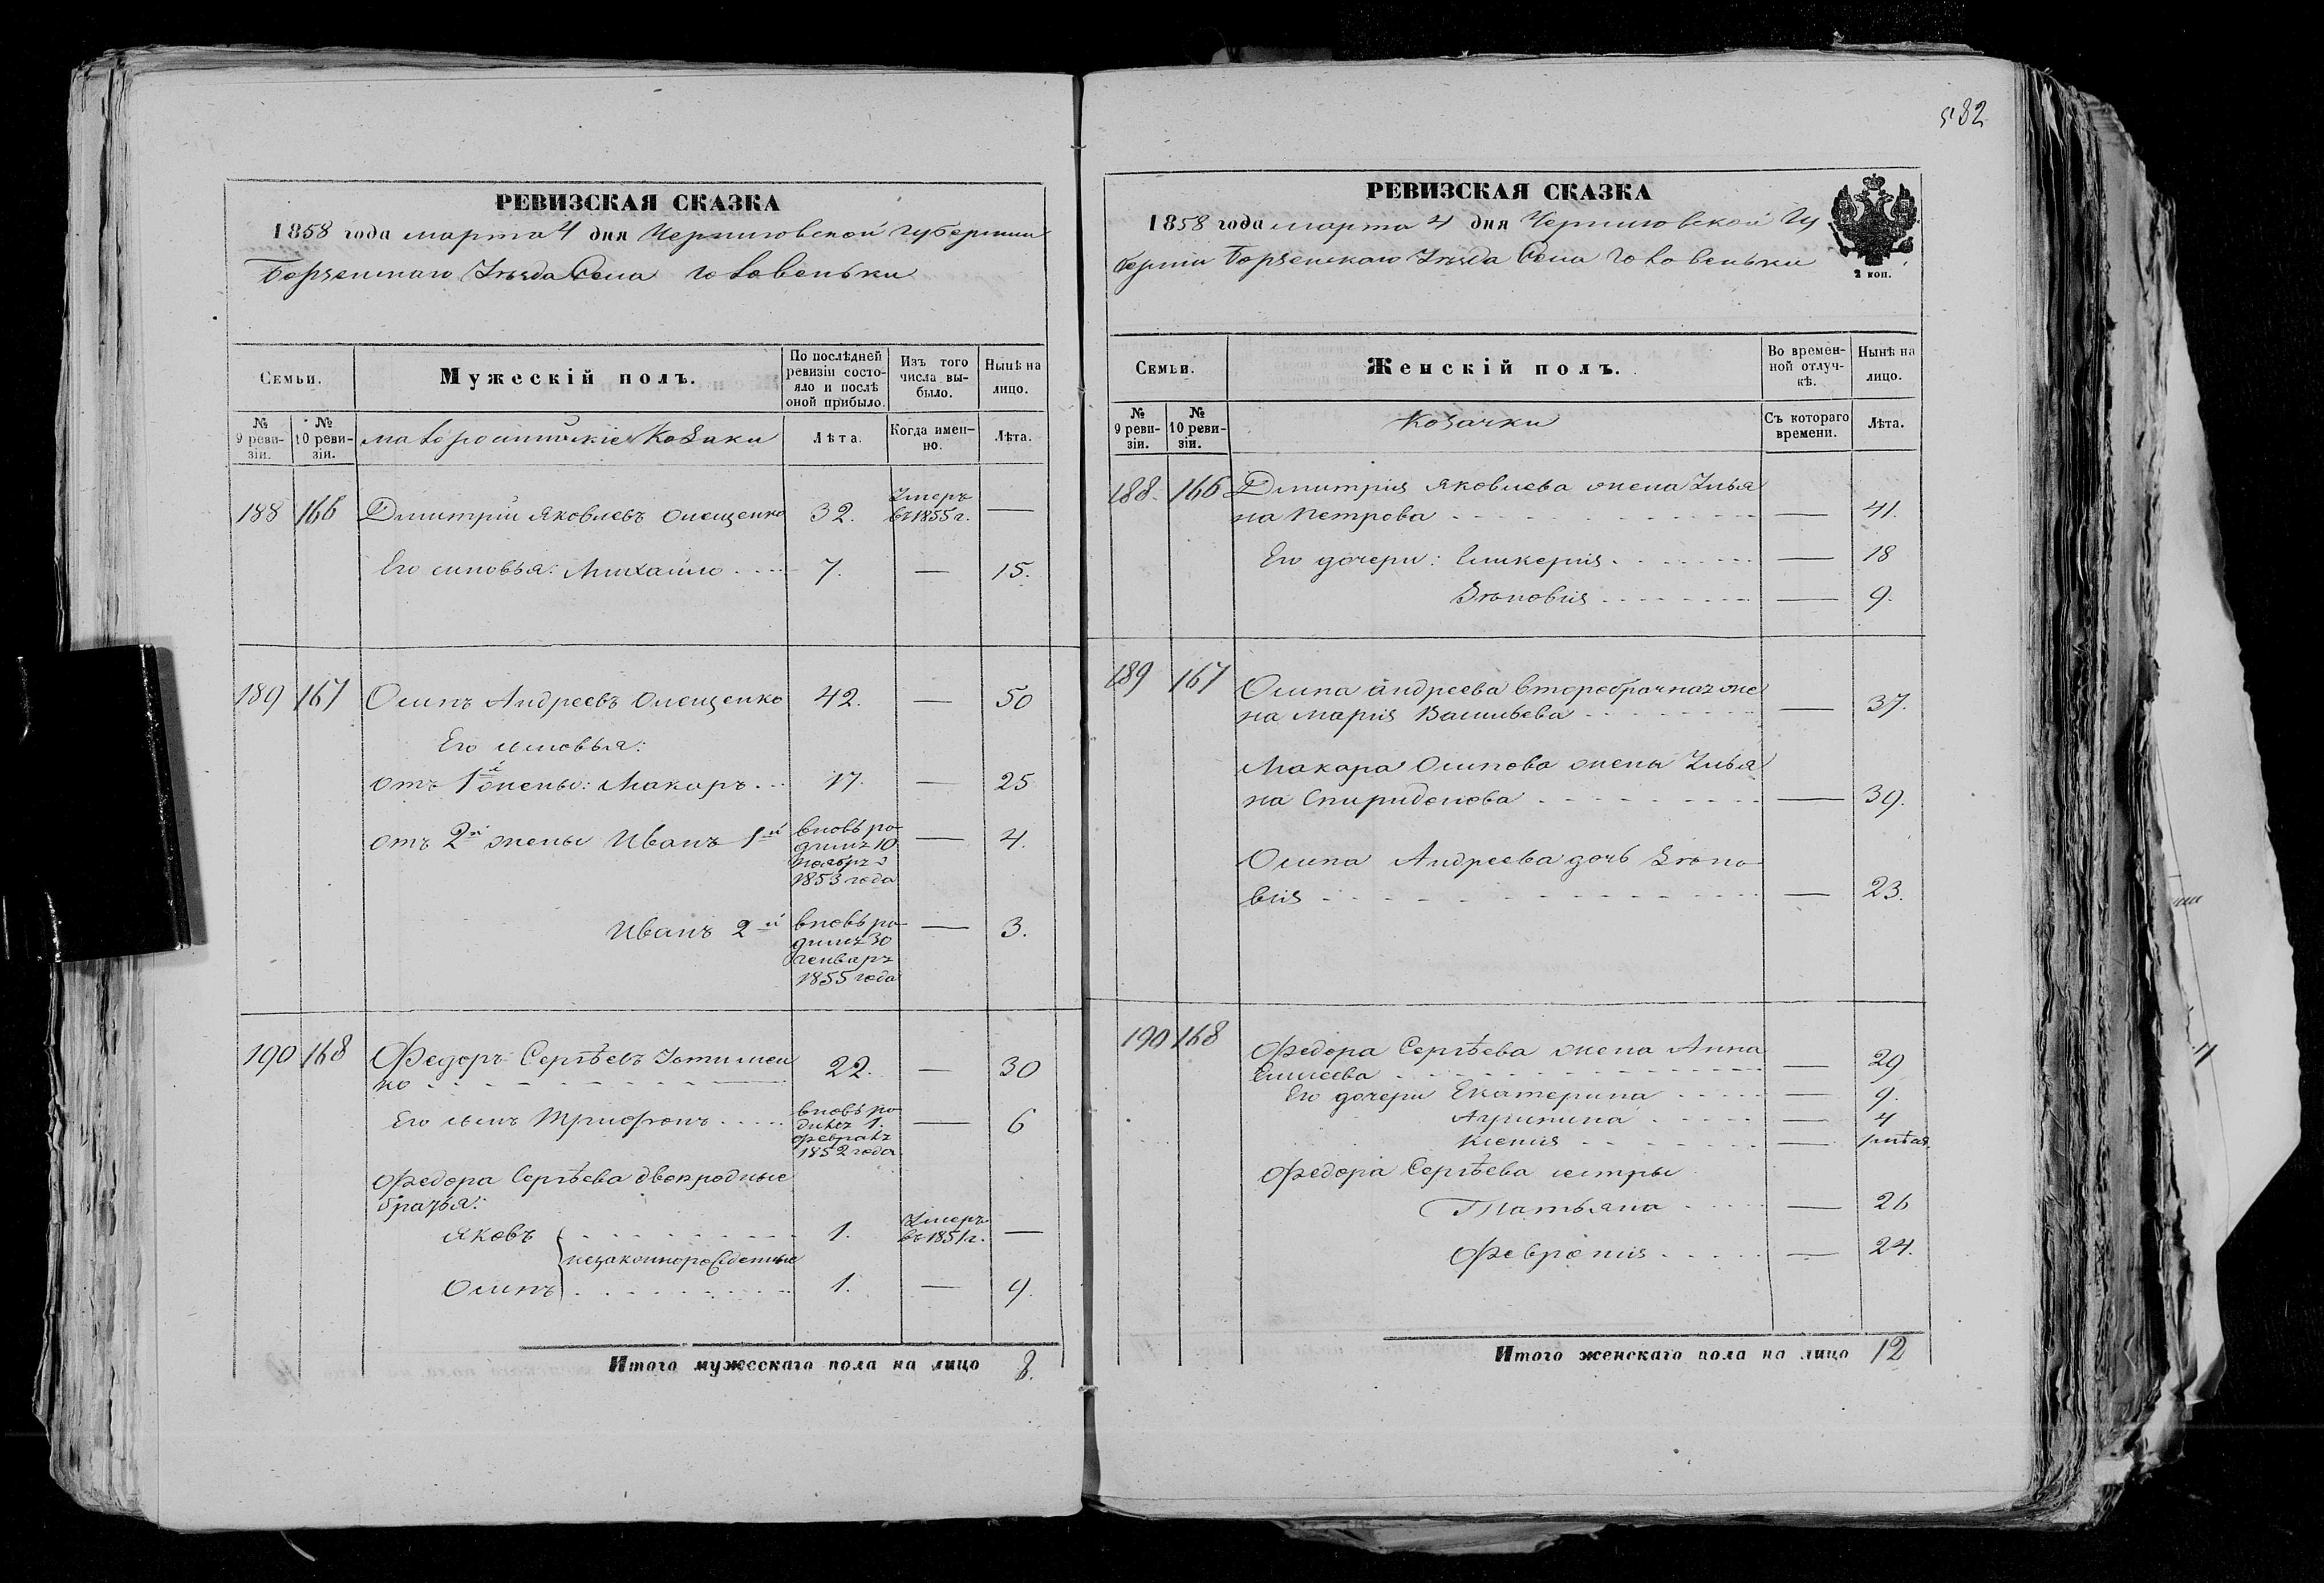 РЕВИЗСКАЯ СКАЗКА
1858 года марта 4 дня Черниговской губернии
Борзенскаго Уѣзда Села Головеньки
Семьи.
Мужескій полъ.
По послѣдней ревизіи состояло и послѣ оной прибыло.
Изъ того числа выбыло.
Нынѣ на лицо.
№ 9 ревизіи.
№ 10 ревизіи.
малороссійскіе Козаки
Лѣта.
Когда именно.
Лѣта.
188 166 Дмитрій Яковлевъ Олещенко 32. Умеръ въ 1855 г. —
Его сыновья: Михайло . . . . 7. — 15.
189 167 Осипъ Андреевъ Олещенко 42. — 50
Его сыновья:
отъ 1й жены: Макаръ . . . 17. — 25
отъ 2й жены Иванъ 1й вновь ро- — 4.
дился 10
ноябрь
1853 года
Иванъ 2й вновь ро- — 3.
дился 30
генваря
1855 года
190 168 Федоръ Сергѣевъ 22. — 30
Его сынъ Трифонъ . . . . . вновь ро- — 6
1.
февраля
1852 года
Федора Сергѣева двоюродные
братья:
Яковъ . . . . . . . . . 1. Умеръ въ 1851 г. —
незаконнорожденные
Осипъ . . . . . . . . . 1. — 9.
Итого мужескаго пола на лицо 8.
582
РЕВИЗСКАЯ СКАЗКА
1858 года марта 4 дня Черниговской Гу
берніи Борзенскаго Уѣзда Села Головеньки
2 коп.
Семьи.
Женскій полъ.
Во временной отлучкѣ.
Нынѣ на лицо.
№ 9 ревизіи.
№ 10 ревизіи.
Козачки
Съ котораго времени.
Лѣта.
188. 166 Дмитрія Яковлева жена Улья
на Петрова — 41.
Его дочери: Гликерія . . . . . . . — 18
Зѣновія . . . . . . . — 9.
189 167 Осипа Андреева второбрачная же
на Марія Васильева — 37.
Макара Осипова жена Улья
на Спиридонова — 39.
Осипа Андреева дочь Зѣно
вія — 23.
190 168 Федора Сергѣева жена Анна
Елисеева — 29
Его дочери Екатерина — 9.
Агрипина — 4
Ксенія —
Федора Сергѣева сестры
Татьяна — 26
Февронія — 24.
Итого женскаго пола на лицо 12